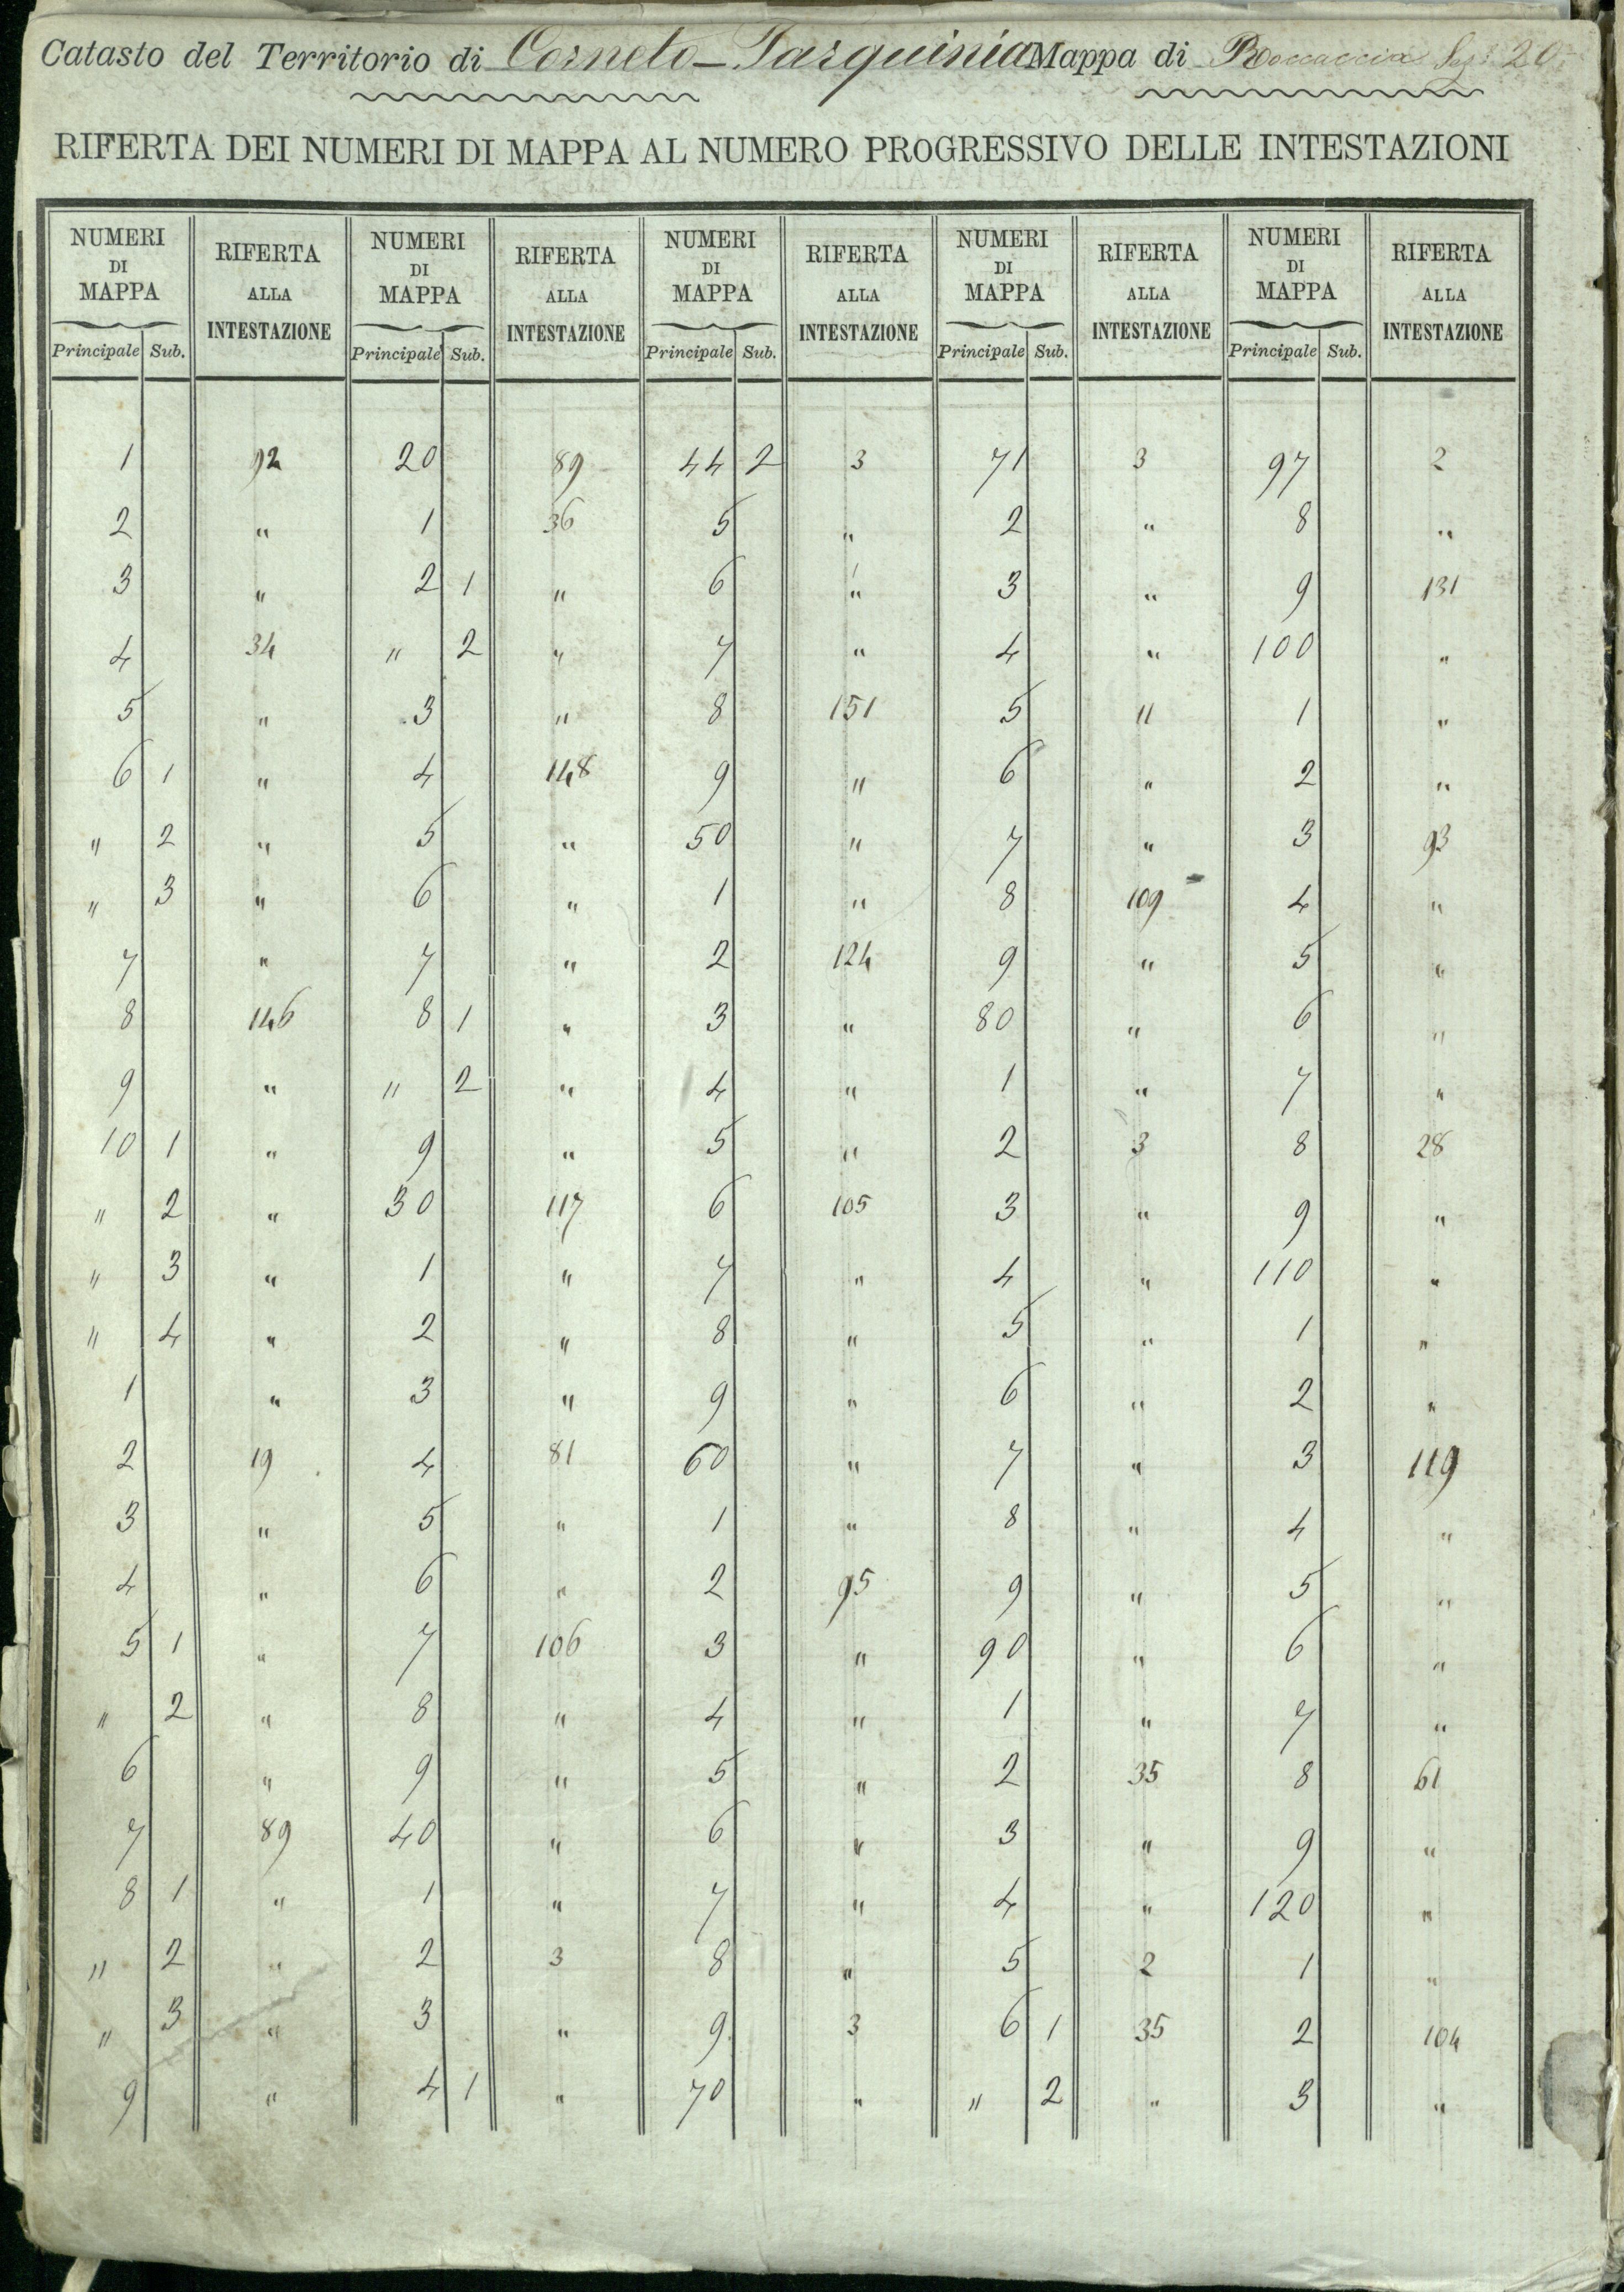 Catasto del Territorio di Corneto-Tarquinia Mappa di Boccaccia 20
RIFERTA DEI NUMERI DI MAPPA AL NUMERO PROGRESSIVO DELLE INTESTAZIONI
NUMERI DI MAPPA RIFERTA ALLA INTESTAZIONE NUMERI DI MAPPA RIFERTA ALLA INTESTAZIONE NUMERI DI MAPPA RIFERTA ALLA INTESTAZIONE NUMERI DI MAPPA RIFERTA ALLA INTESTAZIONE NUMERI DI MAPPA RIFERTA ALLA INTESTAZIONE
Principale Sub. Principale Sub. Principale Sub. Principale Sub. Principale Sub.
1 92 20 89 44 2 3 71 3 97 2
2 " 1 36 5 " 2 " 8 "
3 " 2 1 " 6 " 3 " 9 131
4 34 " 2 " 7 " 4 " 100 "
5 " 3 " 8 151 5 11 1 "
6 1 " 4 148 9 " 6 " 2 "
" 2 " 5 " 50 " 7 " 3 93
" 3 " 6 " 1 " 8 109 4 "
7 " 7 " 2 124 9 " 5 "
8 146 8 1 " 3 " 80 " 6 "
9 " " 2 " 4 " 1 " 7 "
10 1 " 9 " 5 " 2 3 8 28
" 2 " 30 117 6 105 3 " 9 "
" 3 " 1 " 7 " 4 " 110 "
" 4 " 2 " 8 " 5 " 1 "
1 " 3 " 9 " 6 " 2 "
2 19 4 81 60 " 7 " 3 119
3 " 5 " 1 " 8 " 4 "
4 " 6 " 2 95 9 " 5 "
5 1 " 7 106 3 " 90 " 6 "
" 2 " 8 " 4 " 1 " 7 "
6 " 9 " 5 " 2 35 8 61
7 89 40 " 6 " 3 " 9 "
8 1 " 1 " 7 " 4 " 120 "
" 2 " 2 3 8 " 5 2 1 "
" 3 " 3 " 9 3 6 1 35 2 104
9 " 4 1 " 70 " " 2 " 3 "